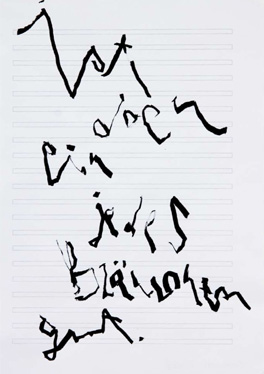 Ist
doch
ein
jedes
Blättchen
gut.